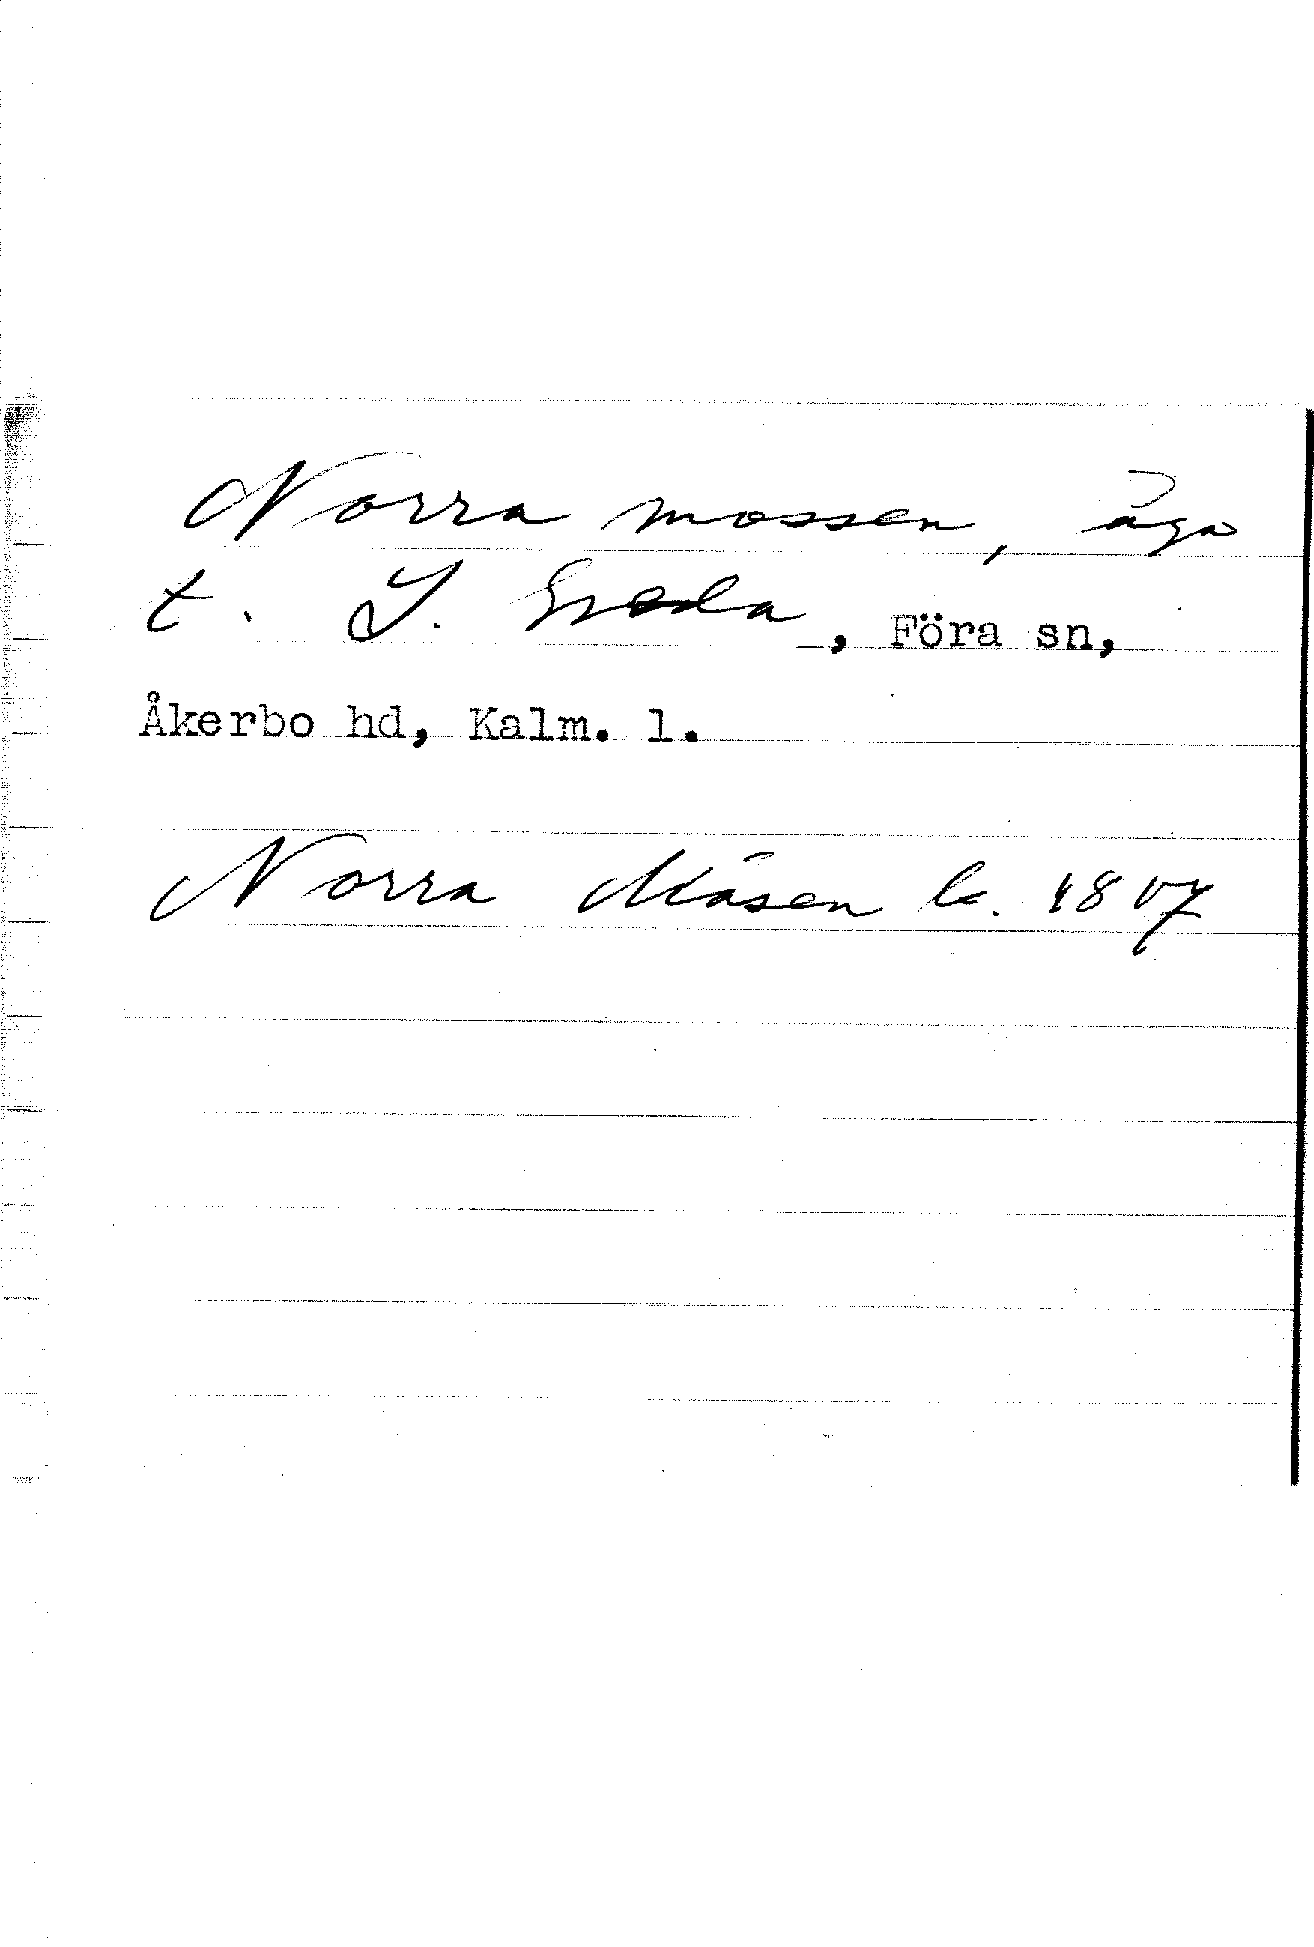 Norra mossen, äga
t. S. Greda, Föra sn,
Åkerbo hd, Kalm. l.
Norra Måsen 1807